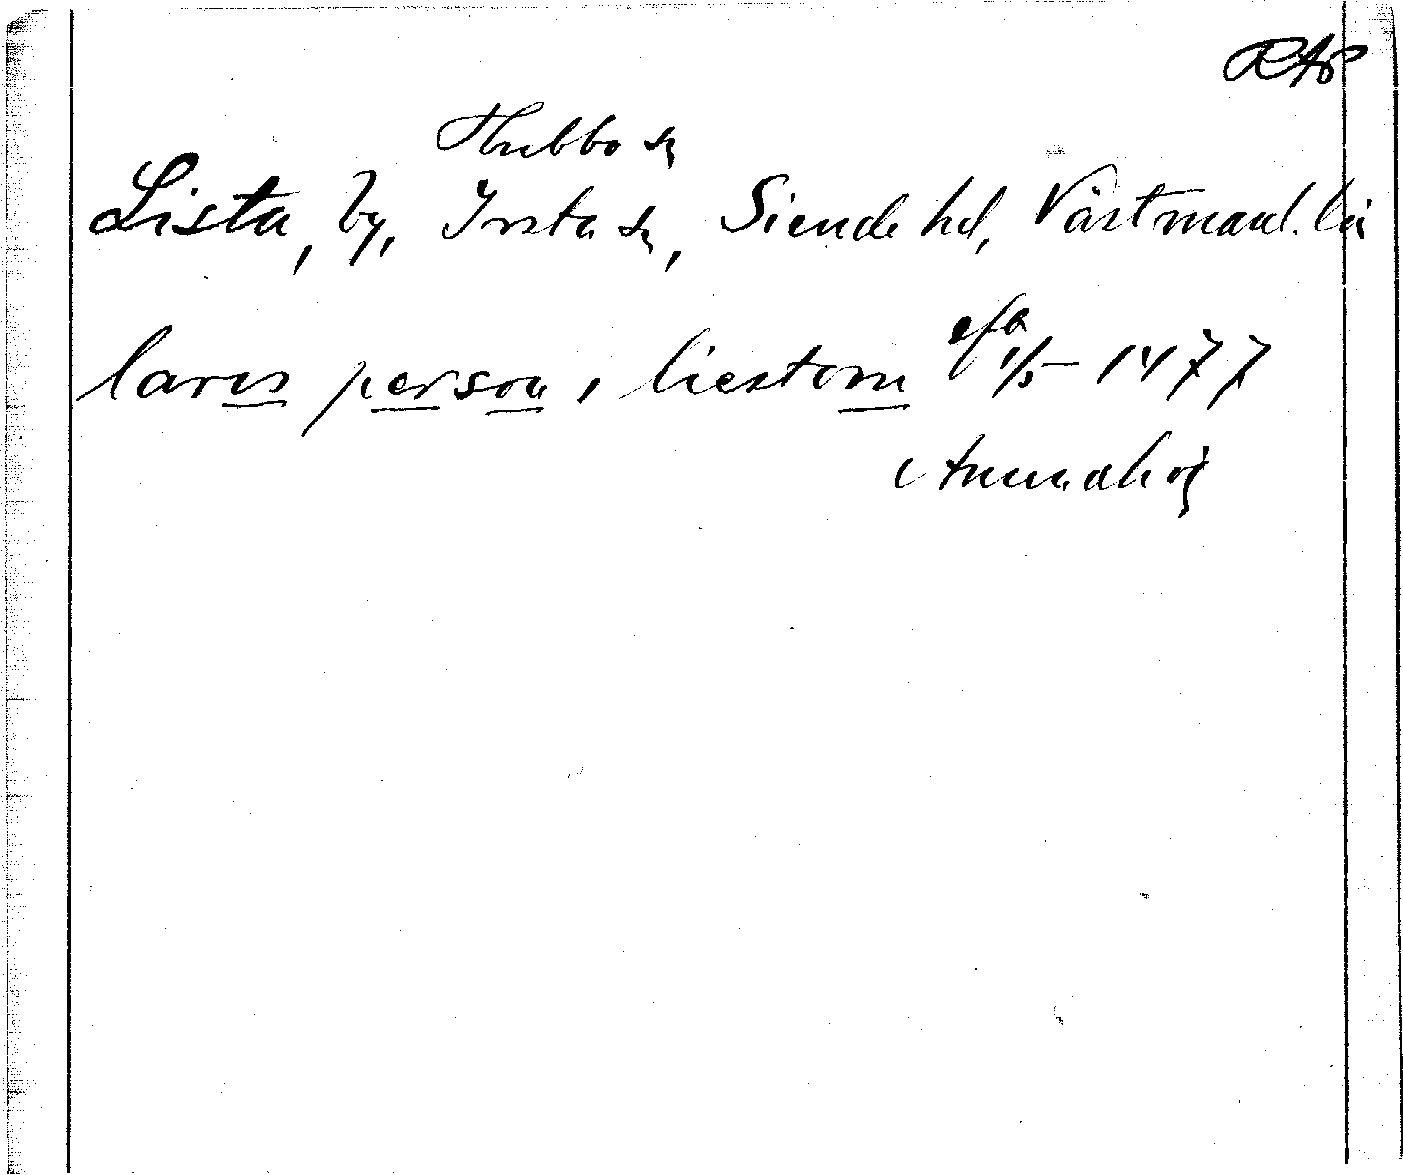 RAp
Hubbo sn
Lista, by, Irsta sn, Siende hd, Västmanl. län
larens person, liestom efa 1/5 1477